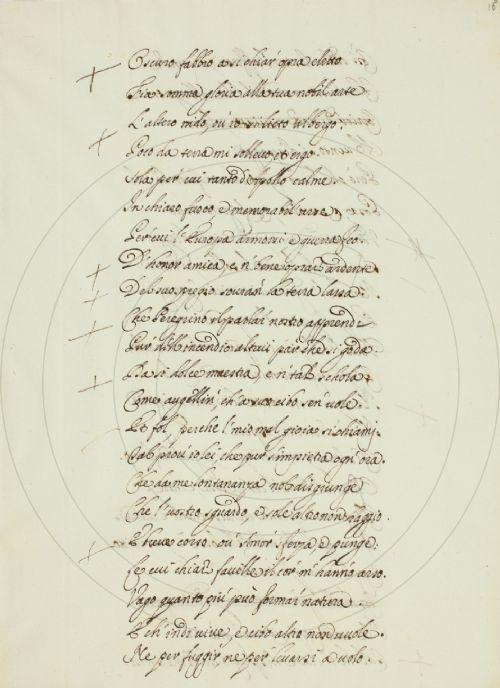 18
Oscuro fabbro a si chiar' opra eletto
Fia somma gloria alla tua nobil arte
L'altero nido, ov' io si lieto albergo.
Poco da terra mi sollevo et ergo.
Sola per cui tanto d'Apollo calme
In chiaro fuoco, e memorabil arse
Per cui l'Europa armossi, e guerra feo.
D'honor amica, e n' bene oprar ardente
Del suo pregio sovrasi la terra
Che Peregrino il parlar nostro apprendi
Pur dell' incendio altrui par che si goda.
Da sì dolce maestra, e n' tal schola
Come augellin, ch' a suo cibo sen' vole.
Et fol, perche l' mio mal gioia si chiami.
Tal provo io lei, che pur s'impietra ogn' ora.
Che da me lontananza nol disgiunge
Che l' vostro sguardo, e sole altro non haggio.
E breve corso ov' Amor i sferza e giunge.
Le cui chiare faville il cor m' hanno arso.
Vago quanto più può formar natura
E ch' indi vive, e cibo altro non vuole.
Ne per fuggir, ne per levarsi a volo.